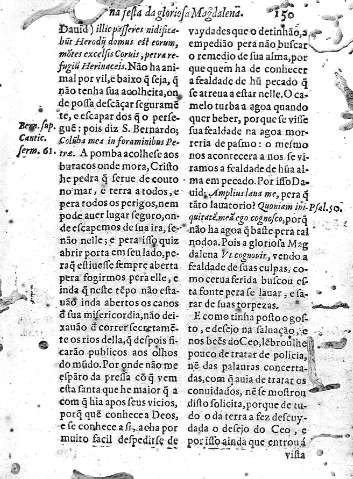 na festa da gloriosa Magdalena. 150
Dauid) illic passeres nidifica-
bũt Herodij domus est eorum,
mõtes excelsis Ceruis, petra re-
fugiũ Herinaceis. Não ha ani
mal por vil, e baixo q̃ seja, q̃
não tenha sua acolheita, on
de possa descãçar segurame
te, e escapar dos q̃ o perse-
guẽ: pois diz S. Bernardo;
Colũba mea in foraminibus Pe-
træ. A pomba acolhese aos
buracos onde mora, Cristo
he pedra q̃ serue de couto
no mar, e terra a todos, e
pera todos os perigos, nem
pode auer lugar seguro, on-
de escapemos de sua ira, se-
não nelle; e pera isso quiz
abrir porta em seu lado, pe-
raq̃ estiuesse sempre aberta
pera fogirmos pera elle, e
inda q̃ neste tẽpo não esta-
uaõ inda abertos os canos
dȧ sua misericordia, não dei-
xauão de correr secretamẽ-
te os rios della, q̃ despois fi-
carão publicos aos olhos
do mũdo. Por onde não me
espãto da pressa cõ q̃ vem
esta santa que he maior q̃ a
com q̃ hia apos seus vicios,
porq̃ quẽ conhece a Deos,
e se conhece a si, acha por
muito facil despedirse de
Bern. sup.
Cantic.
serm. 61.
vaydades que o detinhão, a
empedião pera não buscar
o remedio de sua alma, por
que quem ha de conhecer
a fealdade de hũ pecado q̃
se atreua a estar nelle. O ca
melo turba a agoa quando
quer beber, porque se visse
sua fealdade na agoa mor-
reria de pasmo: o mesmo
nos acontecera a nos se vi-
ramos a fealdade de hũa al
ma em pecado. Por isso Da-
uid; Amplius laua me, pera q̃
tãto lauatorio? Quoniam ini-
quitatẽ meã ego cognosco, porq̃
não ha agoa q̃ baste pera tal
nodoa. Pois a gloriosa Mag
dalena Vt cognouit, vendo a
fealdade de suas culpas, co-
mo cerua ferida buscou es-
ta fonte pera se lauar, e sa-
rar de suas torpezas.
E como tinha posto o gos-
to, e desejo na saluação, e
nos bẽs do Ceo, lẽbroulhe
pouco de tratar de policia,
nẽ das palauras concerta-
das, com q̃ auia de tratar os
conuidados, nẽ se mostrou
disto solicita, porque de tu-
do o da terra a fez descuy-
dada o desejo do Ceo, e
por isso ainda que entrou á
vista
Psal. 50.